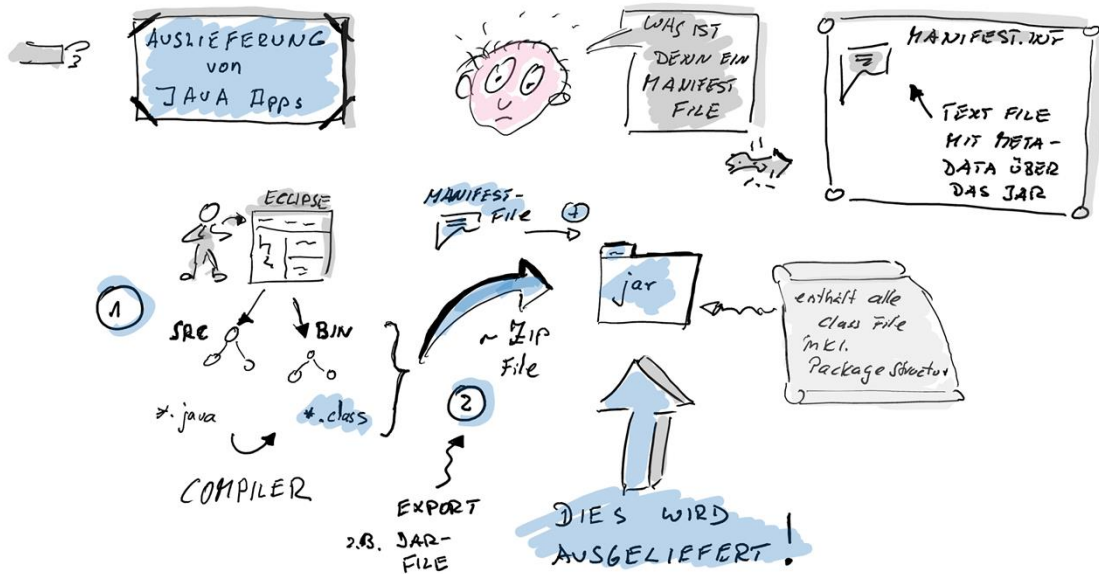 AUSLIEFERUNG
von
JAVA Apps
WAS IST
DENN EIN
MANIFEST
FILE
MANIFEST.INT
TEXT FILE
MIT META-
DATA ÜBER
DAS JAR
ECLIPSE
MANIFEST-
File
+
1
SRC
BIN
*.java
*.class
COMPILER
~ ZIP
File
2
EXPORT
z.B. JAR-
FILE
jar
enthält alle
class File
inkl.
Package Structur
DIES WIRD
AUSGELIEFERT!